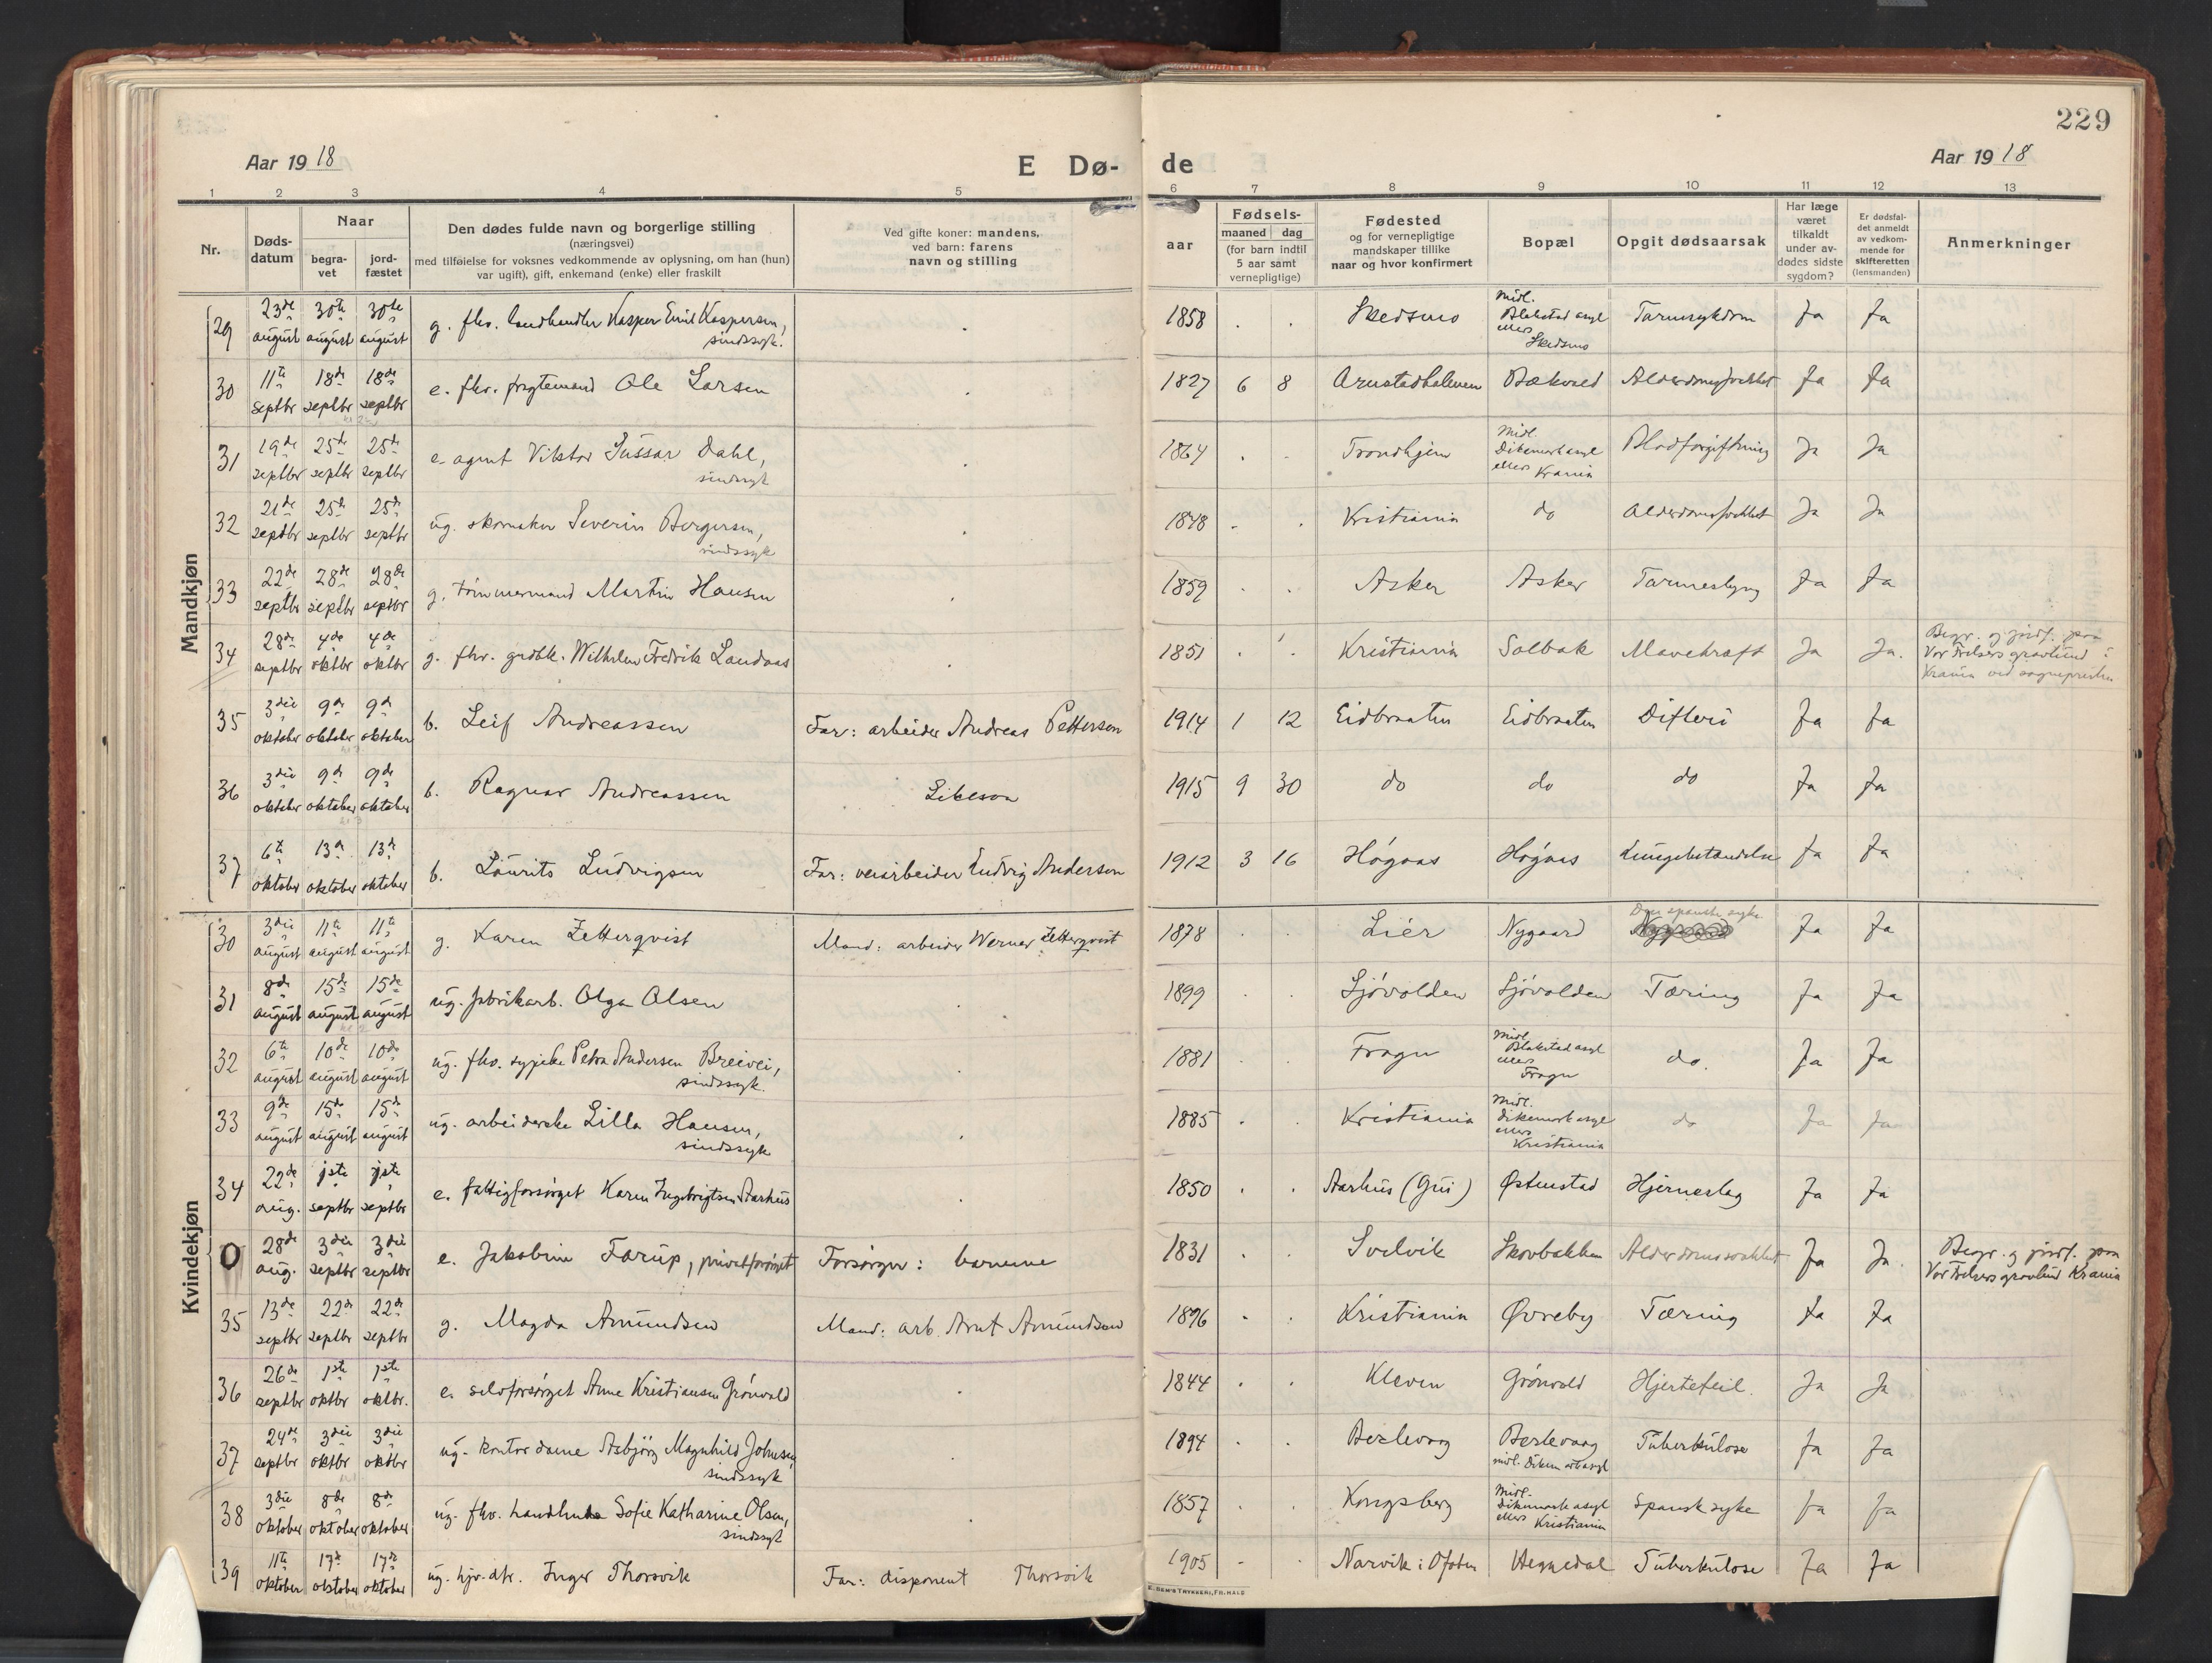 229
Aar 1918
E Dø-
de
Aar 1918
1 2 3 4 5 6 7 8 9 10 11 12 13
Nr.
Døds-
datum
Naar
begra-
vet
jord-
fæstet
Den dødes fulde navn og borgerlige stilling
(næringsvei)
med tilføielse for voksnes vedkommende av oplysning, om han (hun)
var ugift), gift, enkemand (enke) eller fraskilt
Ved gifte koner: mandens,
ved barn: farens
navn og stilling
aar
Fødsels-
maaned dag
(for barn indtil
5 aar samt
vernepligtige)
Fødested
og for vernepligtige
mandskaper tillike
naar og hvor konfirmert
Bopæl
Opgit dødsaarsak
Har læge
været
tilkaldt
under av-
dødes sidste
sygdom?
Er dødsfal-
det anmeldt
av vedkom-
mende for
skifteretten
(lensmanden)
Anmerkninger
Mandkjøn
29 23de august 30te august 30te august g. fhv. landhandler Kasper Emil Kaspersen, sindssyk. 1858 Skedsmo Midl. Blakstad asyl ellers Skedsmo Tarmsykdom Ja Ja
30 11te septbr 18de septbr 18de septbr e. fhv. Ole Larsen 1827 6 8 Bækvold Alderdomssvakhet Ja Ja
31 19de septbr 25de septbr 25de septbr e. agent Viktor Dahl, sindssyk 1864 Trondhjem Midl. Dikemark asyl ellers Krania Blodforgiftning Ja Ja
32 21de septbr 25de septbr 25de septbr ug. skomaker Severin Bergersen, sindssyk 1848 Kristiania do Alderdomssvakhet Ja Ja
33 22de septbr 28de septbr 28de septbr g. tømmermand Martin Hansen 1859 Asker Asker Tarmeslyng Ja Ja
34 28de septbr 4de oktbr 4de oktbr g. fhv. grdbk. Wilhelm Fredrik Landaas 1851 Kristiania Solbak Mavekræft Ja Ja. Begr. og jordf. paa Vor Frelsers gravlund i Krania ved sognepresten
35 3die oktober 9de oktober 9de oktober b. Leif Andreassen Far: arbeider Andreas Petterson 1914 1 12 Eidbraaten Eidbraaten Difteri Ja Ja
36 3die oktober 9de oktober 9de oktober b. Ragnar Andreassen Likeson 1915 9 30 do do do Ja Ja
37 6te oktober 13de oktober 13de oktober b. Laurits Ludvigsen Far: veiarbeider Ludvig Anderson 1912 3 16 Høgaas Høgaas Lungebetændelse Ja Ja
Kvindekjøn
30 3die august 11te august 11te august g. Karen Zetterqvist Mand: arbeider Werner Zetterqvist 1878 Lier Nygaard Den spanske syke Ja Ja
31 8de august 15de august 15de august ug. fabrikarb. Olga Olsen 1899 Sjøvolden Sjøvolden Tæring Ja Ja
32 6te august 10de august 10de august ug. fhv. sypike Petra Andersen Breivei, sindssyk. 1881 Frogn Midl. Blakstad asyl ellers Frogn do. Ja Ja
33 9de august 15de august 15de august ug. arbeiderske Lilla Hansen, sindssyk 1885 Kristiania Midl. Dikemark asyl ellers Kristiania do Ja Ja
34 22de aug. 1ste septbr 1ste septbr e. fattigforsørget Karen Ingebrigtsen Aarhus 1850 Aarhus (Gui) Østenstad Hjerneslag Ja Ja
0 28de aug. 3die septbr 3die septbr e. Jakobine Farup, privatforsørget Forsørger: barnene 1831 Svelvik Skovbakken Alderdomssvakhet Ja Ja. Begr. og jordf. paa Vor Frelsers gravlund Krania
35 13de septbr 22de septbr 22de septbr g. Magda Amundsen Mand: arb. Arnt Amundsen 1896 Kristiania Øvreby Tæring Ja Ja
36 26de septbr 1ste oktbr 1ste oktbr. e. selvforsørget Anne Kristiansen Grønvold 1844 Kleven Grønvold Hjertefeil. Ja Ja
37 24de septbr 3die oktbr 3die oktbr ug. kontordame Asbjørg Magnhild Johnsen, sindssyk 1894 Berlevaag Berlevaag midl. Dikemark asyl Tuberkulose Ja Ja
38 3die oktober 8de oktober 8de oktober ug. fhv. Sofie Katharine Olsen, sindssyk 1857 Kongsberg Midl. Dikemark asyl ellers Kristiania Spansk syke Ja Ja
39 11te oktober 17de oktober 17de oktober ug. hjv. dtr. Inger Thorsvik Far: disponent Thorsvik 1905 Narvik i Ofoten Heggedal Tuberkulose Ja Ja
E. SEM'S TRYKKERI, FR.HALD